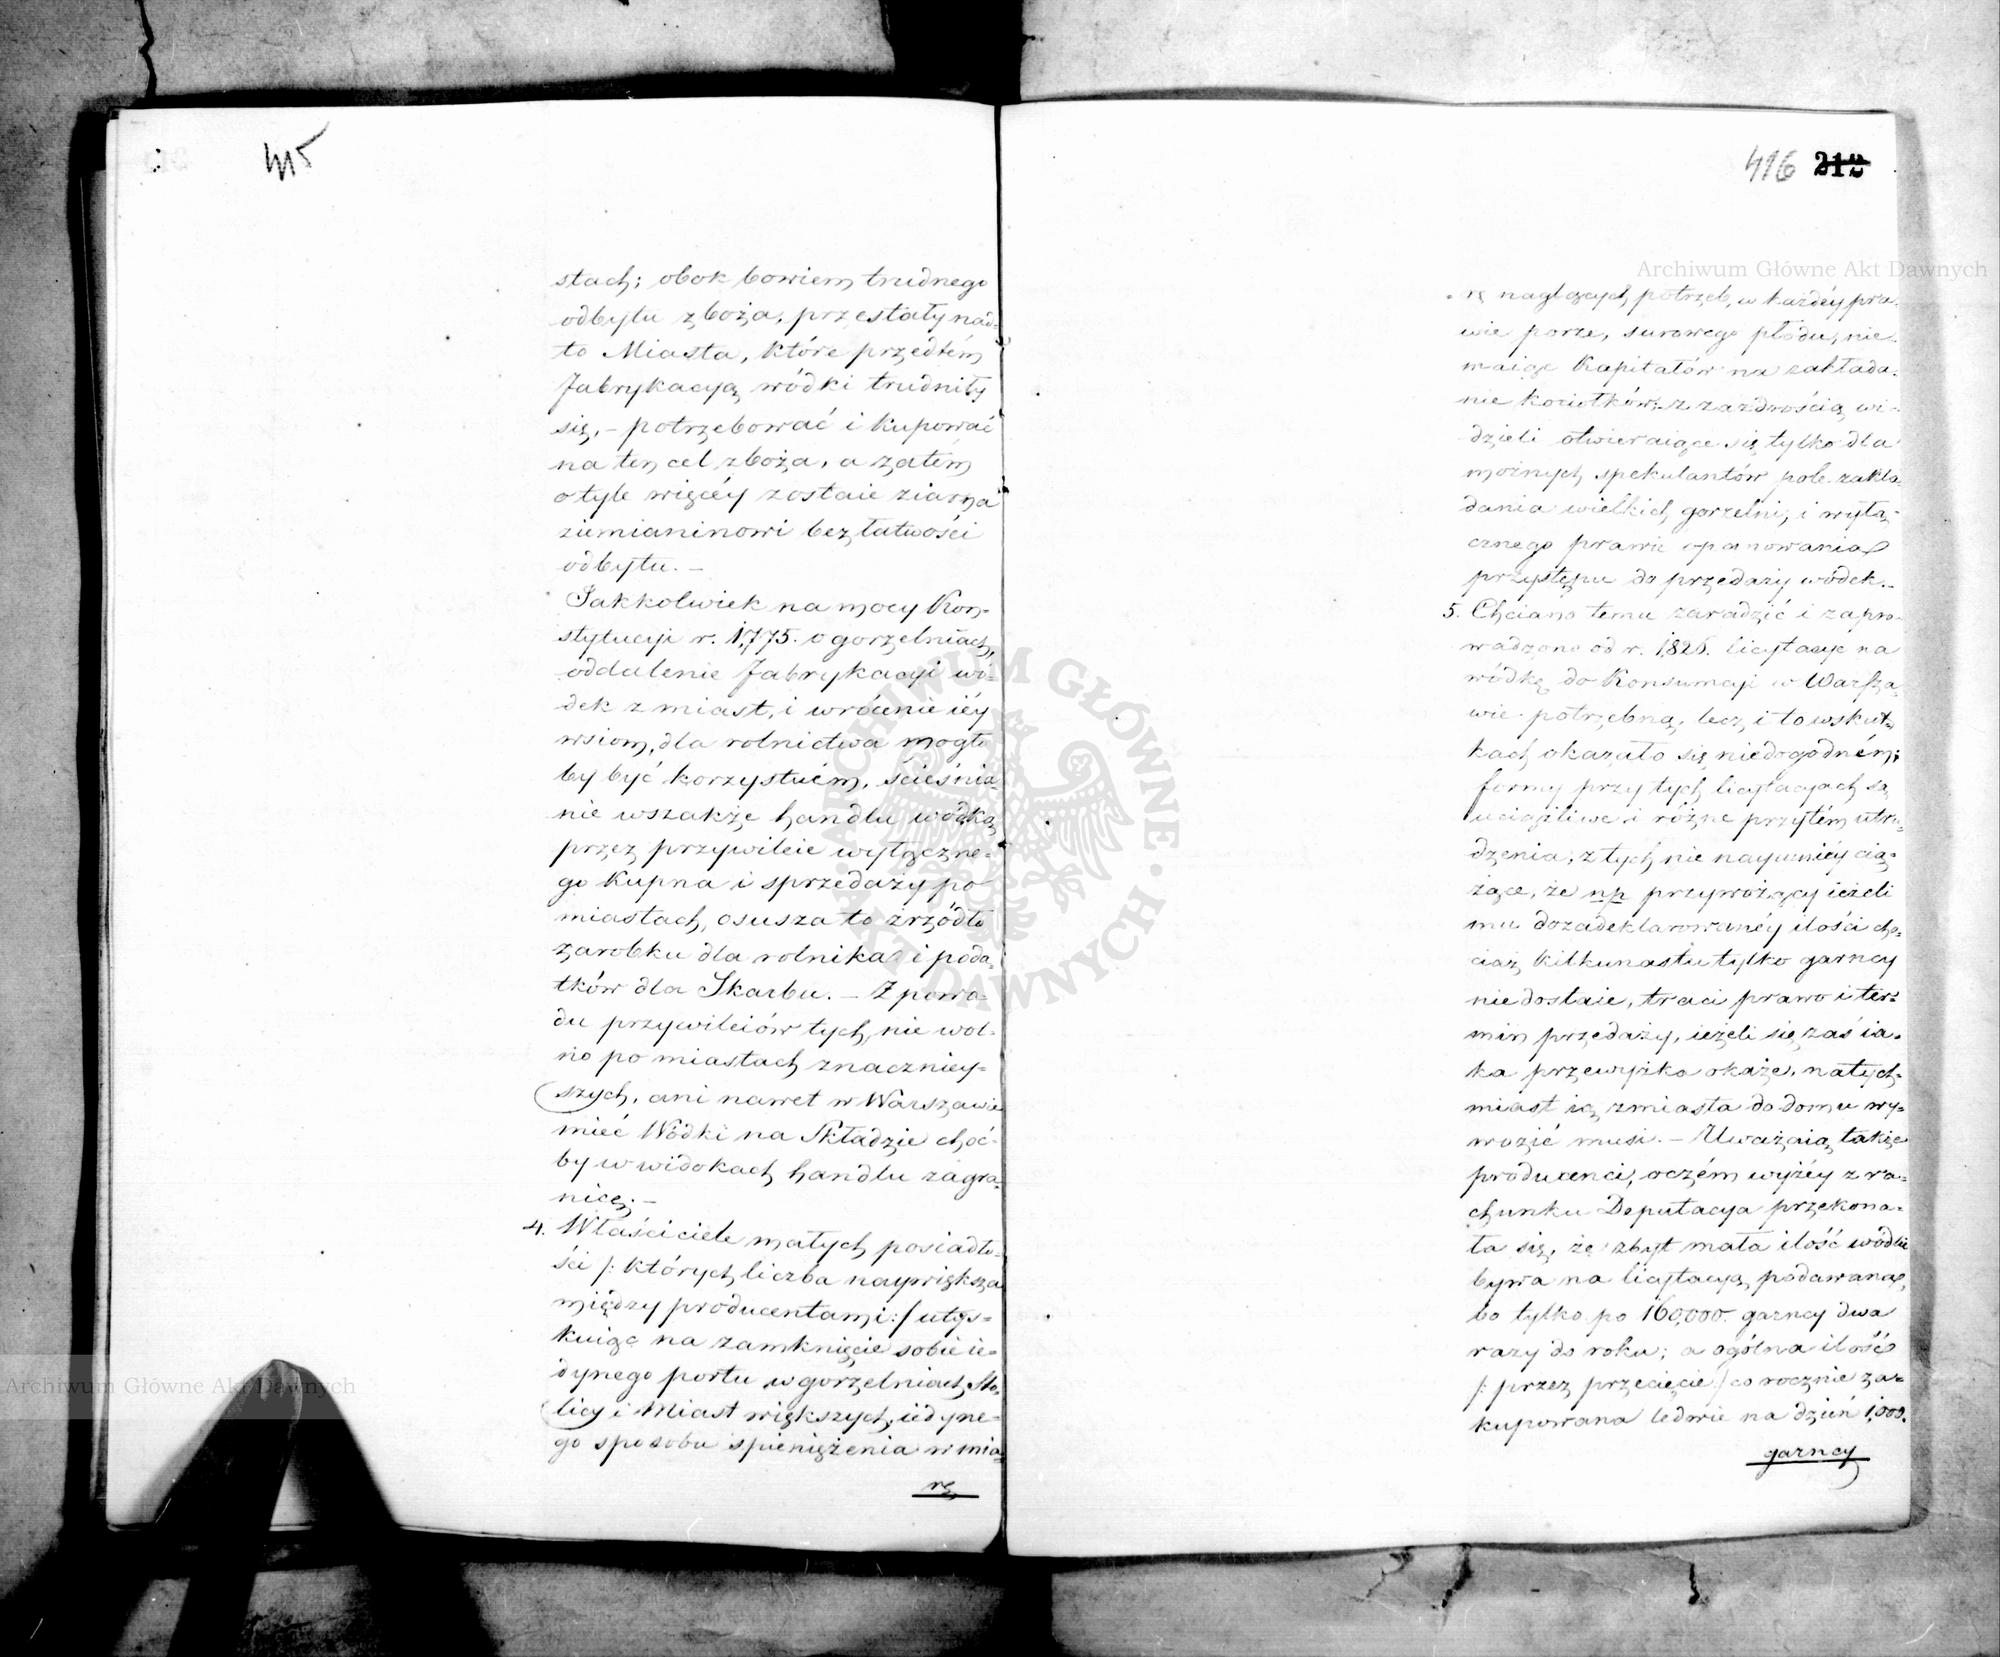 415
stach; obok bowiem trudnego
odbytu zboża, przestały nad=
to Miasta, które przedtém
fabrykacyą wódki trudniły
się, – potrzebować i kupować
na ten cel zboża, a zatém
o tyle więcéy zostaie ziarna
ziemianinowi bez łatwości
odbytu. –
Jakkolwiek na mocy Kon=
stytucyi r. 1,775. o gorzelniach,
oddalenie fabrykacyi wó=
dek z miast, i wrócenie iéy
wsiom, dla rolnictwa mogło
by być korzystném, ścieśnia=
nie wszakże handlu wódką
przez przywileie wyłączne=
go kupna i sprzedaży po
miastach, osusza to źrzódło
zarobku dla rolnika i poda=
tków dla Skarbu. – Z powo=
du przywileiów tych, nie wol=
no po miastach znaczniey=
szych, ani nawet w Warszawie
mieć Wódki na Składzie choć=
by w widokach handlu zagra=
nicę. –
4. Właściciele małych posiadło=
ści /: których liczba naywiększa
między producentami :/ utys=
kuiąc na zamknięcie sobie ie=
dynego portu w gorzelniach Sto=
licy i Miast większych, iedyne=
go sposobu spieniężenia w mia=
rę
416 212
rę naglących potrzeb, w każdéy pra=
wie porze, surowego płodu, nie
maiąc Kapitałów na zakłada=
nie kociołków, z zazdrością wi=
dzieli otwieraiące się tylko dla
możnych spekulantów pole zakła=
dania wielkich gorzelni, i wyłą=
cznego prawie opanowania
przystępu do przedaży wódek. –
5. Chciano temu zaradzić i zapro=
wadzono od r. 1,826. licytacye na
wódkę do Konsumcyi w Warsza=
wie potrzebną, lecz i to w skut=
kach okazało się niedogodném;
formy przy tych licytacyach są
uciążliwe i różne przytém utru=
dzenia, z tych nie naymniéy cią=
żące, że np przywożący ieżeli
mu do zadeklarowanéy ilości cho=
ciaż kilkunastu tylko garncy
nie dostaie, traci prawo i ter=
min przedaży, ieżeli się zaś ia=
ka przewyżka okaże, natych=
miast ią z miasta do domu wy=
wozić musi. – Uważaią także
producenci, o czém wyżéy z ra=
chunku Deputacya przekona=
ła się, że zbyt mała ilość wódki
bywa na licytacyą podawana,
bo tylko po 160,000. garncy dwa
razy do roku; a ogólna ilość
/: przez przecięcie :/ corocznie za=
kupowana ledwie na dzień 1,000.
garncy
Archiwum Główne Akt Dawnych
Archiwum Główne Akt Dawnych
ARCHIWUM GŁÓWNE · AKT DAWNYCH ·